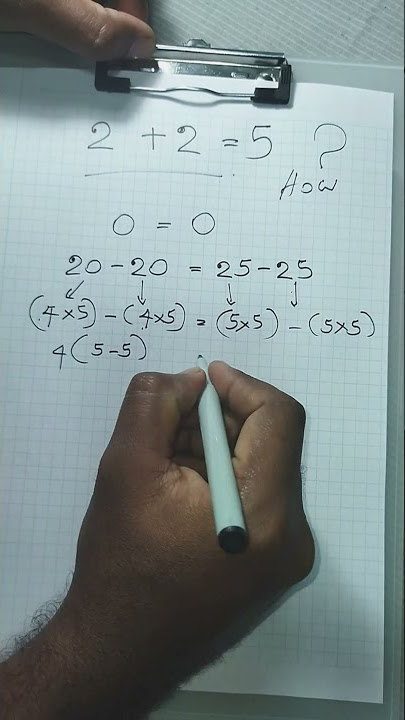 2 + 2 = 5 ?
How
0 = 0
20 - 20 = 25 - 25
(4×5) - (4×5) = (5×5) - (5×5)
4(5-5)